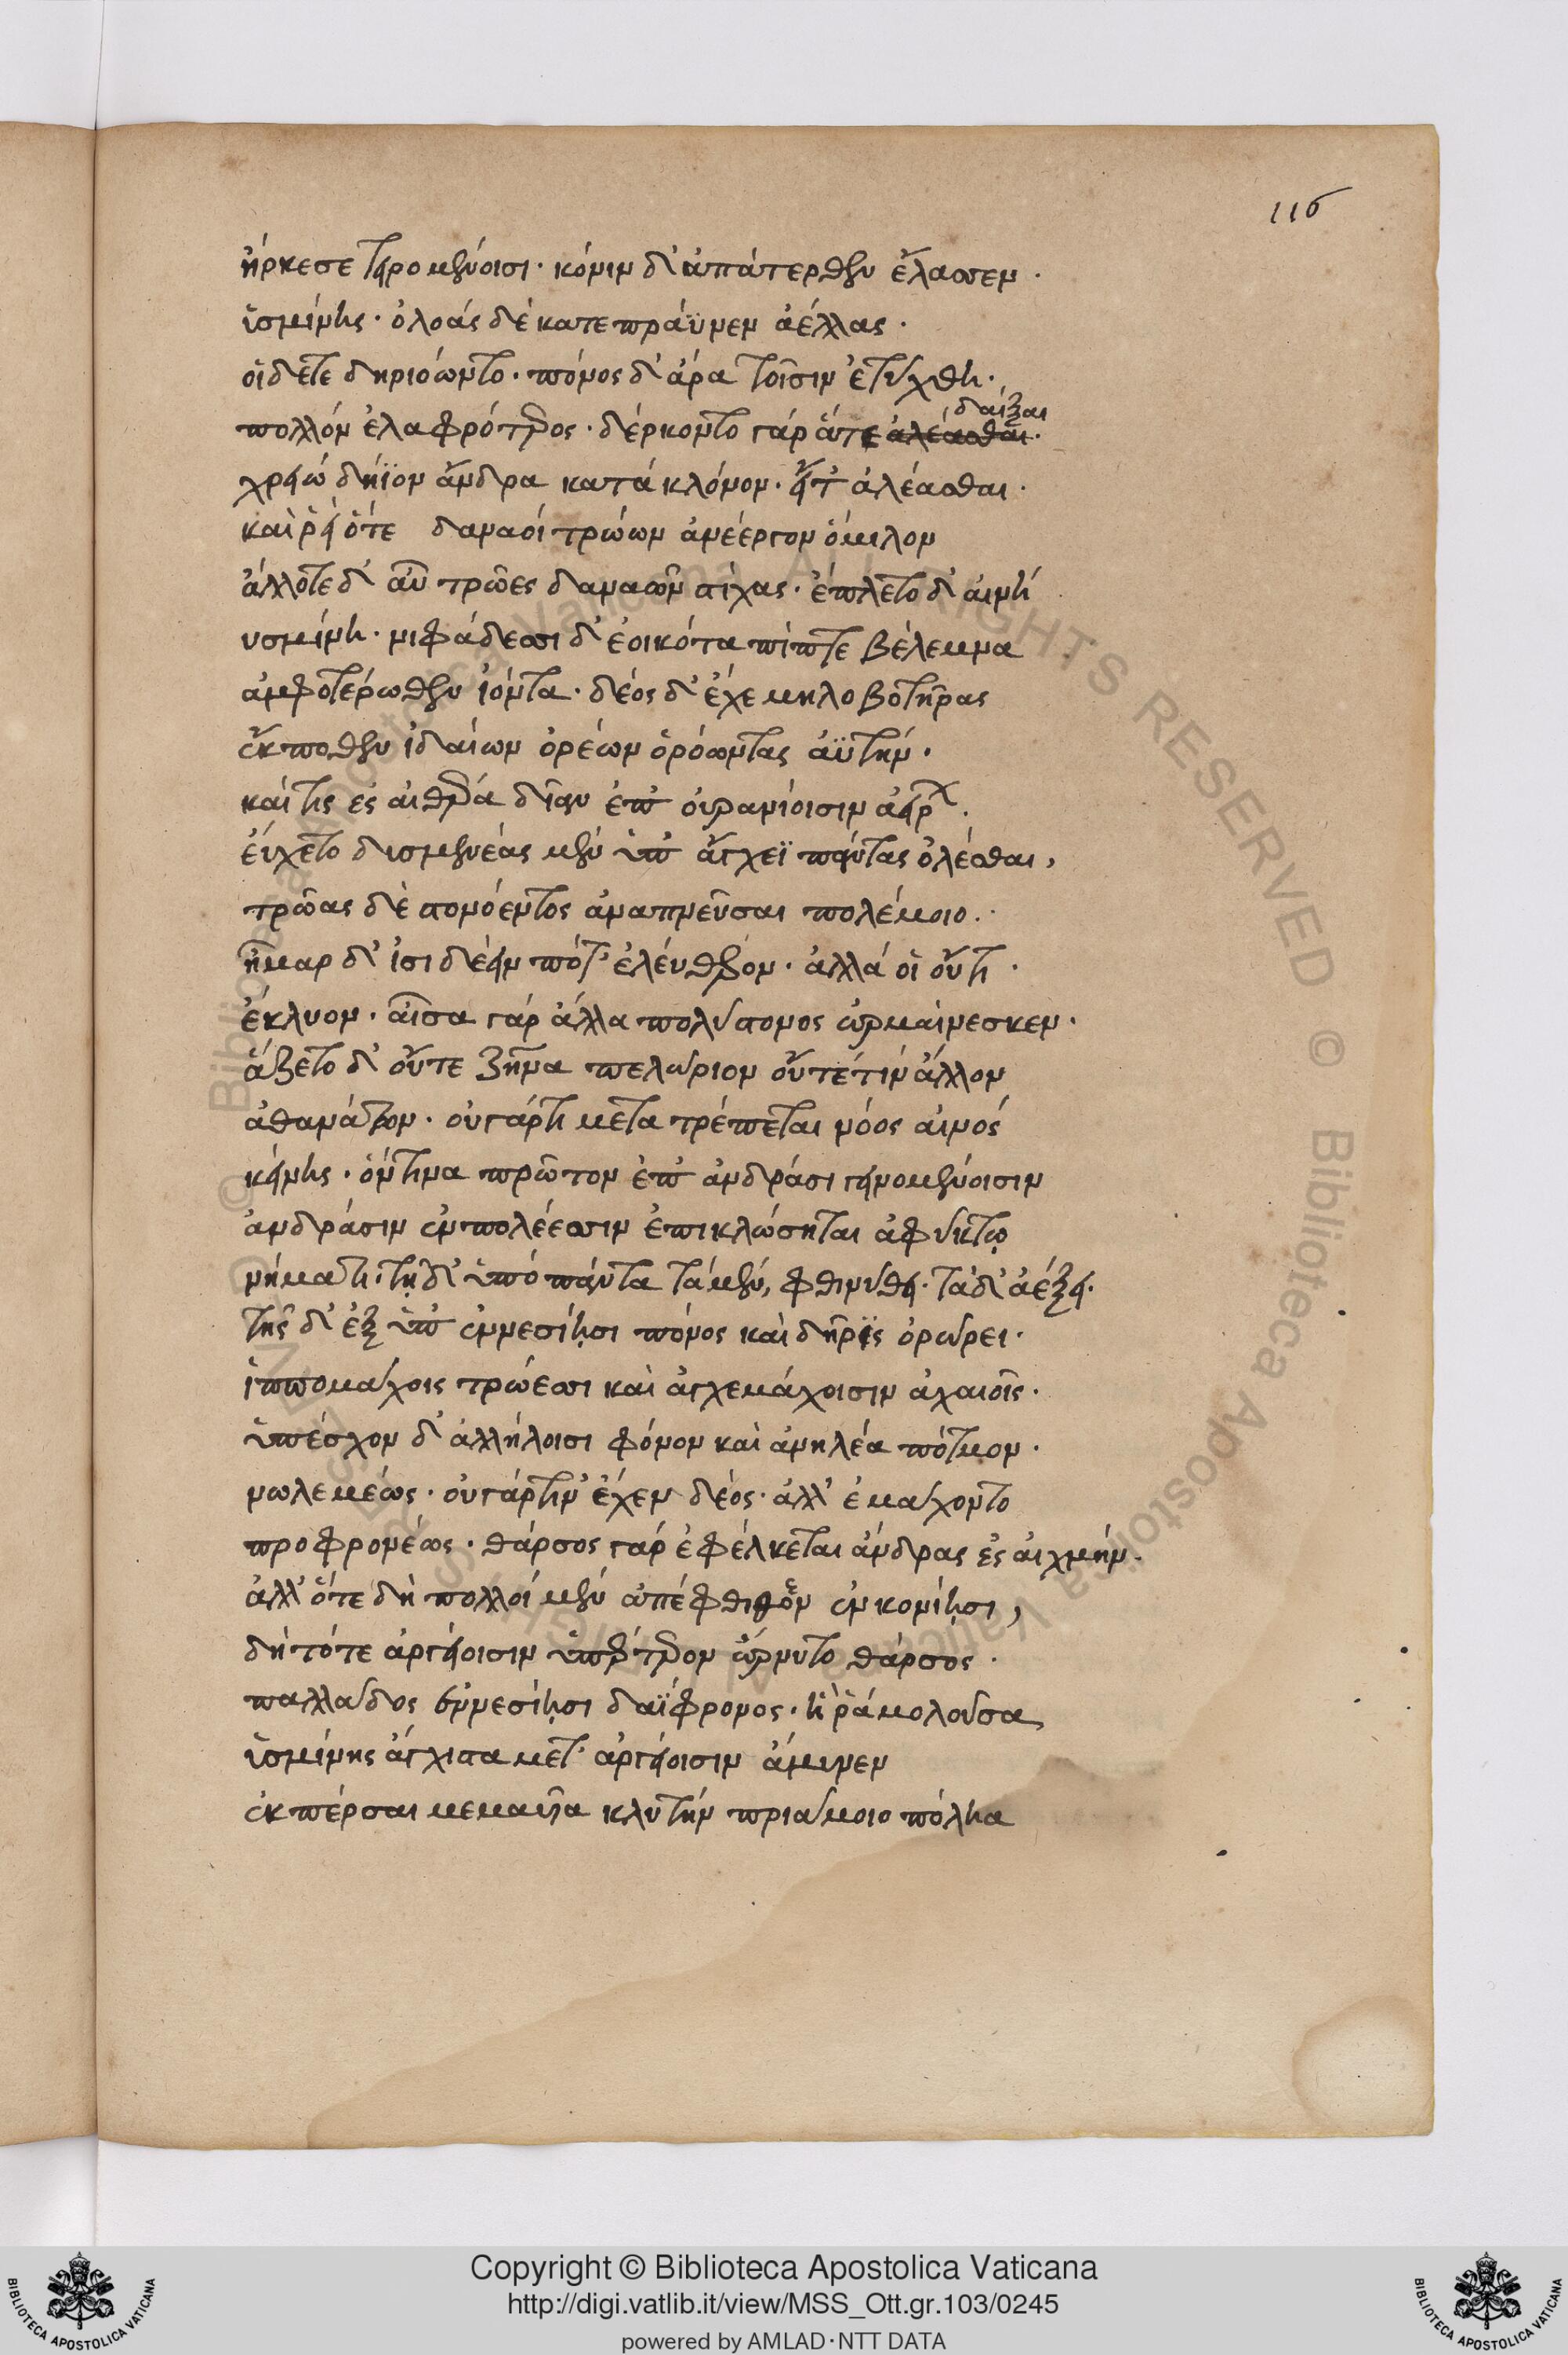 116
ἤρκεσε τειρομένοισι· κόνιν δ' ἀπάτερθεν ἔλασσεν·
ὑσμίνης· ὀλοάς δὲ κατεπράϋνεν ἀέλλας·
οἱ δ' ἔτι δηριόωντο· πόνος δ' ἄρα τοῖσιν ἐτύχθη·
πολλόν ἐλαφρότερος· δέρκοντο γάρ ἄτε ἀλέασθαι· δαΐξαι
χρειώ δήϊον ἄνδρα κατά κλόνον· εἴτ' ἀλέασθαι·
καί ῥ' ὁτέ δαναοί τρώων ἀνέεργον ὅμιλον
ἄλλοτε δ' αὖ τρῶες δαναῶν στίχας· ἔπλετο δ' αἰνή
ὑσμίνη· νιφάδεσσι δ' ἐοικότα πίπτε βέλεμνα
ἀμφοτέρωθεν ἰόντα· δέος δ' ἔχε μηλοβοτῆρας
ἔκποθεν ἰδαίων ὀρέων ὁρόωντας ἀϋτήν·
καί τις ἐς αἰθέρα δῖαν ἐπ' οὐρανίοισιν ἀείρ χ·
εὔχετο δυσμενέας μέν ὑπ' ἄγχεϊ πάντας ὀλέσθαι,
τρῶας δὲ στονόεντος ἀναπνεῦσαι πολέμοιο·
ἦμαρ δ' ἰσιδέειν ποτ' ἐλεύθερον· ἀλλά οἱ οὔτι·
ἔκλυον· αἶσα γάρ ἄλλα πολύστονος ὡρμαίνεσκεν·
ἅζετο δ' οὔτε ζῆνα πελώριον οὔτέ τιν' ἄλλον
ἀθανάτων· οὐ γάρ τι μετατρέπεται νόος αἰνός
κείνης· ὅντινα πρῶτον ἐπ' ἀνδράσι γεινομένοισιν
ἀνδράσιν ἐν πολέεσσιν ἐπικλώσηται ἀφύκτῳ
νήματι· τῇ δ' ὑπό πάντα τά μέν, φθινύθει· τά δ' ἀέξει·
τῆς δ' ἐξ ὑπ' ἐννεσίῃσι πόνος καί δῆρις ὀρώρει·
ἱππομάχοις τρώεσσι καὶ ἀγχεμάχοισιν ἀχαιοῖς·
ὑπέσχον δ' ἀλλήλοισι φόνον καὶ ἀνηλέα πότμον·
νωλεμέως· οὐ γάρ τιν' ἔχεν δέος· ἀλλ' ἐμάχοντο
προφρονέως· θάρσος γάρ ἐφέλκεται ἄνδρας ἐς αἰχμήν·
ἀλλ' ὅτε δή πολλοί μέν ἀπέφθιθον ἐν κονίῃσι,
δή τότε ἀργείοισιν ὑπέρτερον ὤρνυτο θάρσος·
παλλάδος ἐννεσίῃσι δαΐφρονος· ἥ ῥά μολοῦσα
ὑσμίνης ἄγχιστα μετ' ἀργείοισιν ἄμυνεν
ἐκπέρσαι μεμαυῖα κλυτήν πριάμοιο πόληα
Copyright © Biblioteca Apostolica Vaticana
http://digi.vatlib.it/view/MSS_Ott.gr.103/0245
powered by AMLAD·NTT DATA